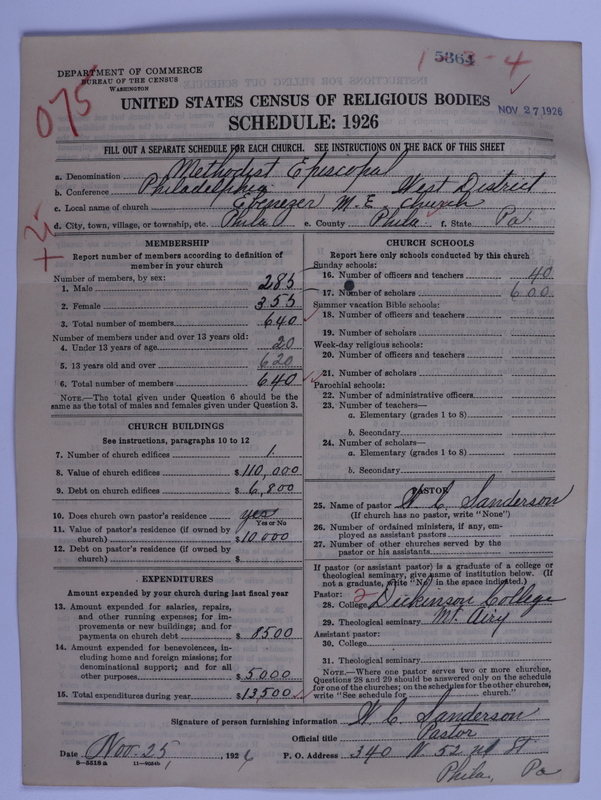 5864
1 - 3 - 4
DEPARTMENT OF COMMERCE
BUREAU OF THE CENSUS
WASHINGTON
075
UNITED STATES CENSUS OF RELIGIOUS BODIES
NOV 27 1926
SCHEDULE: 1926
FILL OUT A SEPARATE SCHEDULE FOR EACH CHURCH. SEE INSTRUCTIONS ON THE BACK OF THIS SHEET
a. Denomination Methodist Episcopal
b. Conference Philadelphia West District
c. Local name of church Ebenezer M. E. Church
d. City, town, village, or township, etc. Phila e. County Phila f. State Pa.
MEMBERSHIP
Report number of members according to definition of
member in your church
Number of members, by sex:
1. Male 285
2. Female 355
3. Total number of members 640
Number of members under and over 13 years old:
4. Under 13 years of age 20
5. 13 years old and over 620
6. Total number of members 640
NOTE.—The total given under Question 6 should be
same as the total of males and females given under Question 3.
CHURCH BUILDINGS
See instructions, paragraphs 10 to 12
7. Number of church edifices 1
8. Value of church edifices $110,000
9. Debt on church edifices $6,800
10. Does church own pastor's residence yes
Yes or No
11. Value of pastor's residence (if owned by
church) $10,000
12. Debt on pastor's residence (if owned by
church) $
EXPENDITURES
Amount expended by your church during last fiscal year
13. Amount expended for salaries, repairs,
and other running expenses; for im-
provements or new buildings; and for
payments on church debt $8500
14. Amount expended for benevolences, in-
cluding home and foreign missions; for
denominational support; and for all
other purposes $5000
15. Total expenditures during year $13,500
CHURCH SCHOOLS
Report here only schools conducted by this church
Sunday schools:
16. Number of officers and teachers 40
17. Number of scholars 600
Summer vacation Bible schools:
18. Number of officers and teachers
19. Number of scholars
Week-day religious schools:
20. Number of officers and teachers
21. Number of scholars
Parochial schools:
22. Number of administrative officers
23. Number of teachers—
a. Elementary (grades 1 to 8)
b. Secondary
24. Number of scholars—
a. Elementary (grades 1 to 8)
b. Secondary
PASTOR
25. Name of pastor W. C. Sanderson
(If church has no pastor, write "None")
26. Number of ordained ministers, if any, em-
ployed as assistant pastors
27. Number of other churches served by the
pastor or his assistants
If pastor (or assistant pastor) is a graduate of a college or
theological seminary, give name of institution below. (If
not a graduate, write "No" in the space indicated.)
Pastor:
28. College Dickinson College
29. Theological seminary Mt. Airy
Assistant pastor:
30. College
31. Theological seminary
NOTE.—Where one pastor serves two or more churches,
Questions 28 and 29 should be answered only on the schedule
for one of the churches; on the schedules for the other churches,
write "See schedule for church."
Signature of person furnishing information W. C. Sanderson
Official title Pastor
Date Nov. 25, 1926 P. O. Address 340 N. 52 nd St
8—5518a
Phila, Pa